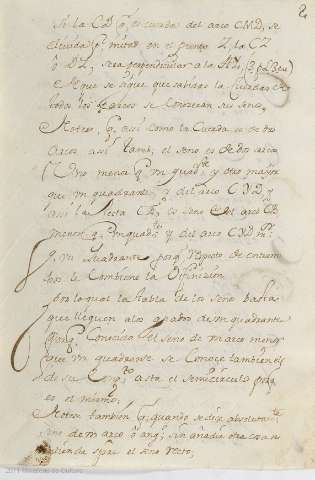 2
Si la CD q es cuerda del arco CMD, se
divida p mitad en el punto Z, la CZ
o DZ, sera perpendicular a la
De que se sigue que sabidas las Cuerdas de
todos los arcos se Conoceran sus senos
Notese, q asi como la Cuerda es de dos
arcos, asi tamb. el seno es de dos arcos
Uno menor q un quad.te y otro mayor
que un quadrante, y del arco CND, y
asi la recta CZ, es seno del arco CB
menor q un quad.te y del arco CND
un quadrante, porq respecto de entram
bos le Combiene la Difinicion
por lo qual la tabla de los senos basta
que lleguen a los 90 grados de un quadrante
porq Conocido el seno de un arco menor
que un quadrante se Conoce tambien el
de su asta el Semicirculo porq
es el mismo.
Notese tambien q quando se dize absolutam.te
seno de un arco o ang. sin añadir otra cosa se
entiende el seno recto.
2011 Ministerio de Cultura